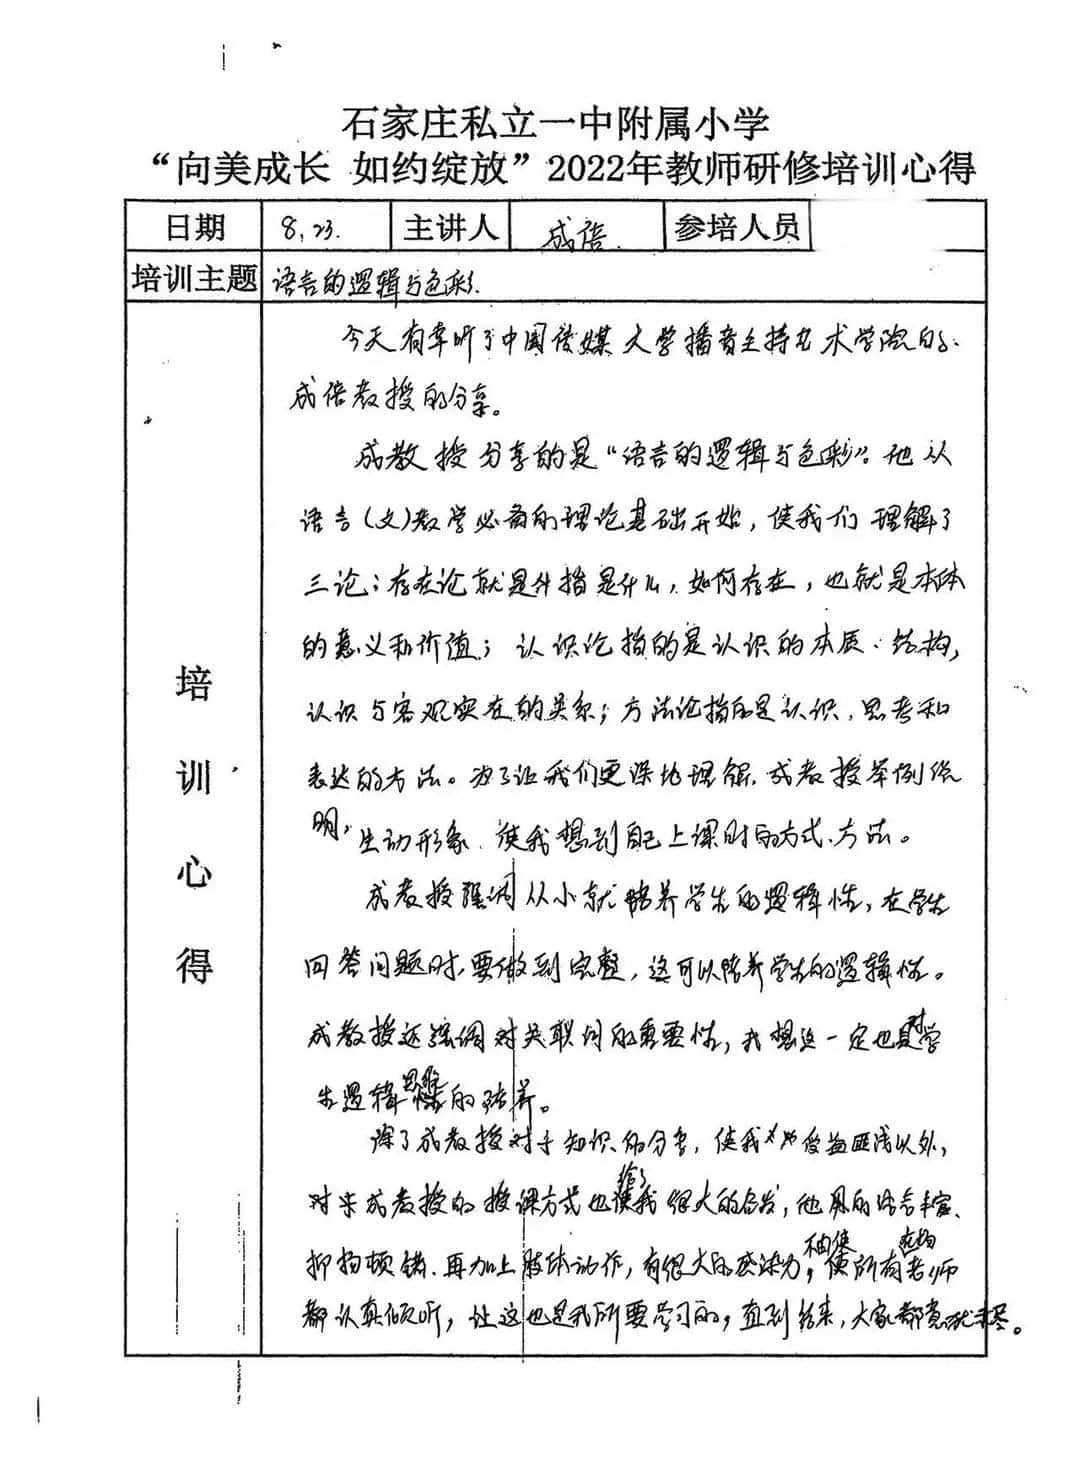 石家庄私立一中附属小学
“向美成长 如约绽放”2022年教师研修培训心得
日期 8.23. 主讲人 成倍. 参培人员
培训主题 语言的逻辑与色彩.
培训心得
今天有幸听了中国传媒大学播音主持艺术学院的
成倍教授的分享。
成教授分享的是“语言的逻辑与色彩”。他从
语言(文)教学必备的理论基础开始，使我们理解了
三论：存在论就是指是什么，如何存在，也就是本体
的意义和价值；认识论指的是认识的本质、结构，
认识与客观实在的关系；方法论指的是认识、思考和
表达的方法。为了让我们更深地理解，成教授举例说
明，生动形象、使我想到自己上课时的方式、方法。
成教授强调从小就培养学生的逻辑性，在学生
回答问题时，要做到完整，这可以培养学生的逻辑性。
成教授还强调对关联词的重要性，我想这一定也是对学
生逻辑思维的培养。
除了成教授对于知识的分享，使我受益匪浅以外，
对来成教授的授课方式也给了我很大的启发，他用的语言丰富、
抑扬顿错、再加上肢体动作，有很大的感染力，使所有老师均
都认真倾听，让这也是我所要学习的，直到结束，大家都意犹未尽。